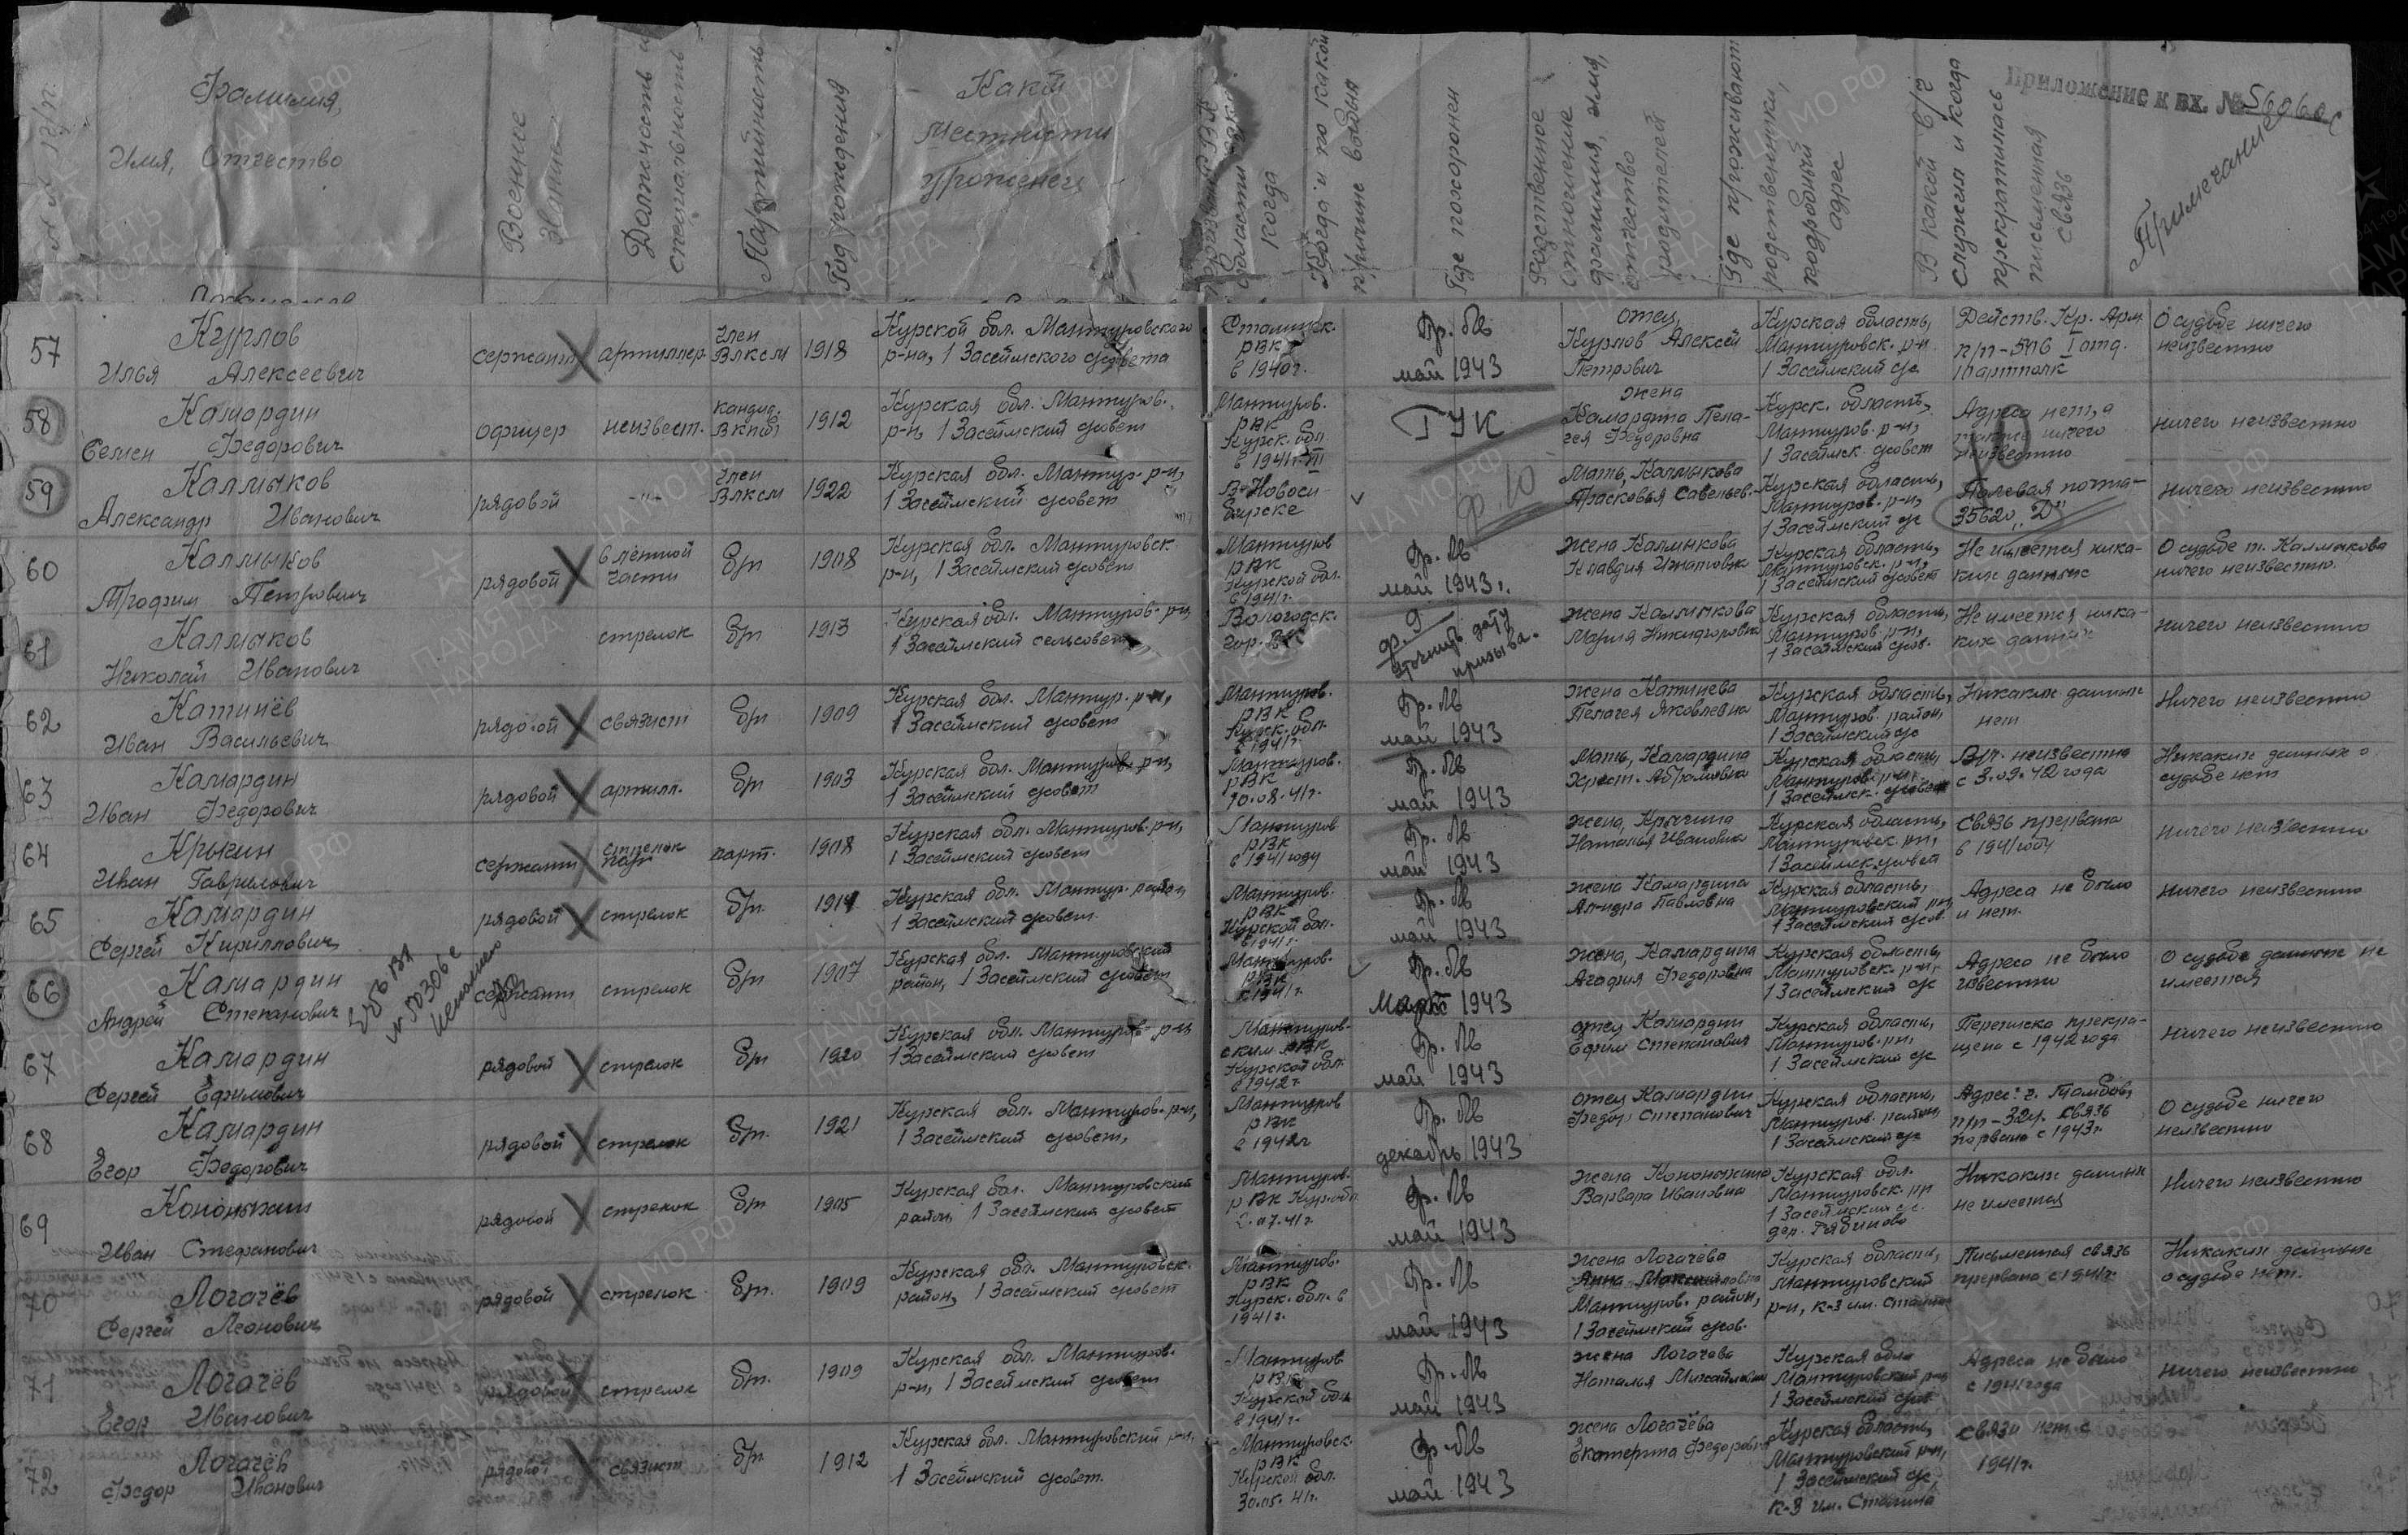 Приложение к вх. № 56060с
Фамилия,
Имя, Отчество
Военное звание
Должность и специальность
Партийность
Год рождения
Какой местности уроженец
когда
Когда и по какой причине выбыл
Где похоронен
Родственное отношение, фамилия, имя, отчество родителей
Где проживают родственники, подробный адрес
В какой в/ч служил и когда прекратилась письменная связь
Примечание
57 Курлов Илья Алексеевич
сержант
артиллер.
член ВЛКСМ
1918
Курской обл. Мантуровского р-на, 1 Засеймского с/совета
Сталинск. РВК в 1940 г.
Пр. Пв май 1943
отец Курлов Алексей Петрович
Курская область, Мантуровск. р-н 1 Засеймский с/с
Действ. Кр. Арм. п/п-
О судьбе ничего неизвестно
58 Камардин Семен Федорович
офицер
неизвест.
кандид. ВКП(б)
1912
Курская обл. Мантуров. р-н, 1 Засеймский с/совет
Мантуров. РВК Курск. обл. в 1941 г.
ГУК
жена Камардина Пелагея Федоровна
Курск. область, Мантуров. р-н, 1 Засеймск. с/совет
Адреса нет, а также ничего неизвестно
ничего неизвестно
59 Калмыков Александр Иванович
рядовой
-"-
член ВЛКСМ
1922
Курская обл. Мантур. р-н, 1 Засеймский с/совет
В Новосибирске
ф. 10
Мать, Калмыкова Прасковья Савельев.
Курская область, Мантуров. р-н, 1 Засеймский с/с
Полевая почта - 35620 "Д"
ничего неизвестно
60 Калмыков Трофим Петрович
рядовой
в летной части
б/п
1908
Курская обл. Мантуровск. р-н, 1 Засеймский с/совет
Мантуров РВК Курской обл. в 1941 г.
Пр. Пв май 1943 г.
жена Калмыкова Клавдия Игнатовна
Курская область, Мантуровск. р-н, 1 Засеймский с/совет
Не имеется никаких данных
О судьбе т. Калмыкова ничего неизвестно.
61 Калмыков Николай Иванович
стрелок
б/п
1913
Курская обл. Мантуров. р-н, 1 Засеймский сельсовет
Вологодск. гор. ВК
ф. 9 уточнить дату призыва.
жена Калмыкова Мария Никифоровна
Курская область, Мантуров. р-н, 1 Засеймский с/сов.
Не имеется никаких данных
ничего неизвестно
62 Катинёв Иван Васильевич
рядовой
связист
б/п
1909
Курская обл. Мантур. р-н, 1 Засеймский с/совет
Мантуров. РВК Курск. обл. в 1941 г.
Пр. Пв май 1943
жена Катинева Пелагея Яковлевна
Курская область, Мантуров. район, 1 Засеймский с/с
Никаких данных нет
Ничего неизвестно
63 Камардин Иван Федорович
рядовой
артилл.
б/п
1903
Курская обл. Мантуров. р-н, 1 Засеймский с/совет
Мантуров. РВК 10.08.41 г.
Пр. Пв май 1943
Мать, Камардина
Курская область, Мантуров. р-н, 1 Засеймск. с/совет
В/п. неизвестна с 3.09.42 года
Никаких данных о судьбе нет
64 Крыгин Иван Гаврилович
сержант
стрелок
парт.
1908
Курская обл. Мантуров. р-н, 1 Засеймский с/совет
Мантуров РВК в 1941 году
Пр. Пв май 1943
жена, Крыгина Наталья Ивановна
Курская область, Мантуровск. р-н, 1 Засеймск. с/совет
Связь прервана в 1941 году
ничего неизвестно
65 Камардин Сергей Кириллович
рядовой
стрелок
б/п.
1914
Курская обл. Мантур. район, 1 Засеймский с/совет
Мантуров. РВК Курской обл. в 1941 г.
Пр. Пв май 1943
жена Камардина Ал-ндра Павловна
Курская область, Мантуровский р-н, 1 Засеймский с/сов.
Адреса не было и нет.
ничего неизвестно
66 Камардин Андрей Степанович
сержант
стрелок
б/п
1907
Курская обл. Мантуровский район, 1 Засеймский с/совет
Мантуров. РВК в 1941 г.
Пр. Пв Март 1943
жена, Камардина Агафия Федоровна
Курская область, Мантуровск. р-н, 1 Засеймский с/с
Адреса не было известно
О судьбе данных не имеется
67 Камардин Сергей Ефимович
рядовой
стрелок
б/п
1920
Курская обл. Мантуров. р-н, 1 Засеймский с/совет
Мантуровским РВК Курской обл. в 1942 г.
Пр. Пв май 1943
отец Камардин Ефим Степанович
Курская область, Мантуров. р-н, 1 Засеймский с/с
Переписка прекращена с 1942 года
ничего неизвестно
68 Камардин Егор Федорович
рядовой
стрелок
б/п.
1921
Курская обл. Мантуров. р-н, 1 Засеймский с/совет,
Мантуров РВК в 1941 г
Пр. Пв декабрь 1943
отец Камардин Федор Степанович
Курская область, Мантуров. район, 1 Засеймский с/с
Адрес: г. Тамбов, п/п-324. связь порвана с 1943 г.
О судьбе ничего неизвестно
69 Кононыхин Иван Стефанович
рядовой
стрелок
б/п
1905
Курская обл. Мантуровский район, 1 Засеймский с/совет
Мантуров. РВК Кур. обл. 07.41 г.
Пр. Пв май 1943
жена Кононыхина Варвара Ивановна
Курская обл. Мантуровск. р-н 1 Засеймский с/с. дер. Рябиново
Никаких данных не имеется
Ничего неизвестно
70 Логачёв Сергей Леонович
рядовой
стрелок
б/п.
1909
Курская обл. Мантуровск. район, 1 Засеймский с/совет
Мантуров. РВК Курск. обл. в 1941 г.
Пр. Пв май 1943
жена Логачёва Анна Максимовна Мантуров. район, 1 Засеймский с/сов.
Курская область, Мантуровский р-н, к-з им. Сталина
Письменная связь прервана с 1941 г.
Никаких данных о судьбе нет.
71 Логачёв Егор Иванович
рядовой
стрелок
б/п.
1909
Курская обл. Мантуров. р-н, 1 Засеймский с/совет
Мантуров РВК Курской обл. в 1941 г.
Пр. Пв май 1943
жена Логачева Наталья Михайловна
Курская обл. Мантуровский р-н, 1 Засеймский с/сов
Адреса не было с 1941 года
ничего неизвестно
72 Логачёв Федор Иванович
рядовой
связист
б/п
1912
Курская обл. Мантуровский р-н, 1 Засеймский с/совет.
Мантуровск. РВК Курской обл. 30.05.41 г.
Пр. Пв май 1943
жена Логачёва Екатерина Федоровна
Курская область, Мантуровский р-н, 1 Засеймский с/с, к-з им. Сталина
связи нет с 1941 г.